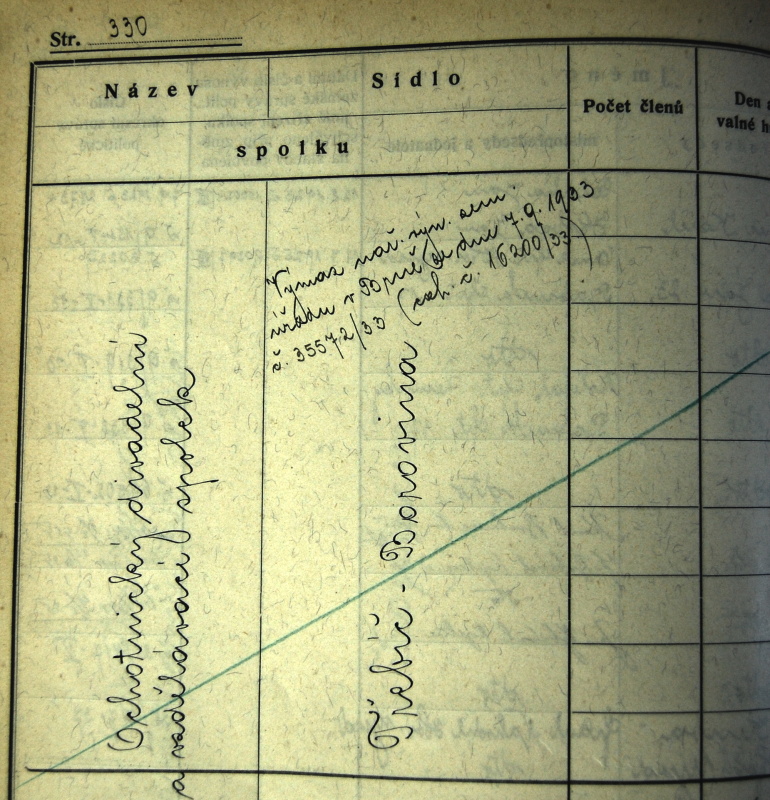 Str. 330
Název
Sídlo
spolku
Počet členů
Den a
valné h
Výmaz nař. zem.
úřadu v Brně ze dne 7.9.1933
č. 35572/33 (č. 16200/33)
Ochotnický divadelní
a vzdělávací spolek
Třebíč - Borovina